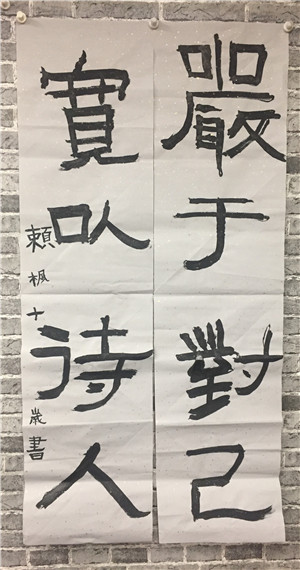 嚴于對己
寬以待人
賴楓十歲書